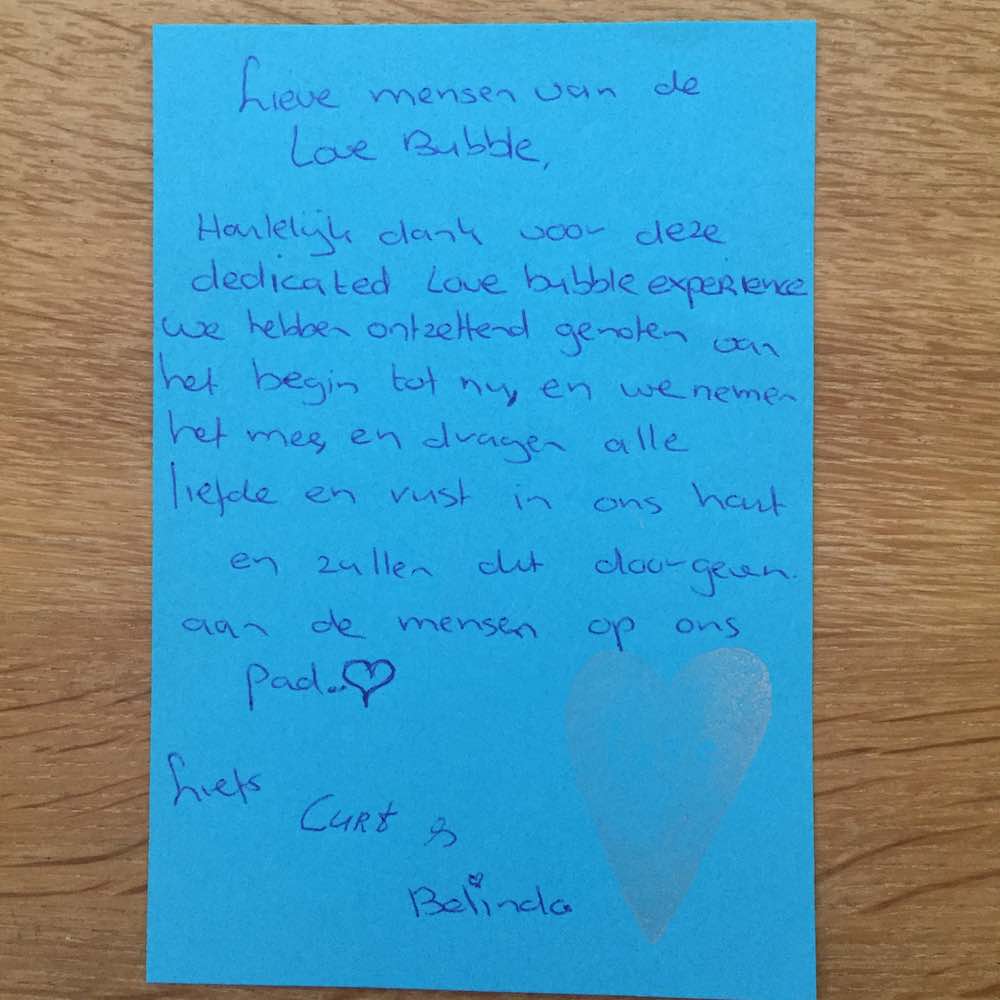 Lieve mensen van de
Love Bubble,
Hartelijk dank voor deze
dedicated Love bubble experience
we hebben ontzettend genoten van
het begin tot nu, en we nemen
het mee, en dragen alle
liefde en rust in ons hart
en zullen dit doorgeven.
aan de mensen op ons
pad..♡
Liefs
Curt &
Belinda